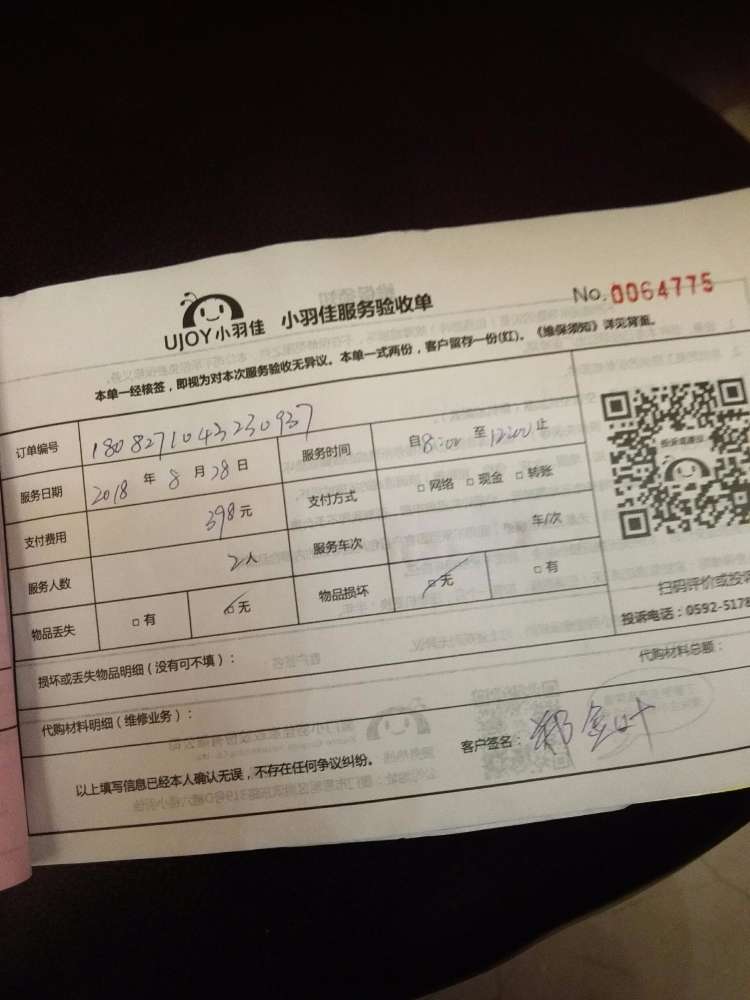 UJOY小羽佳 小羽佳服务验收单 No. 0064775
本单一经核签，即视为对本次服务验收无异议。本单一式两份，客户留存一份(红)。《维保须知》详见背面。
订单编号 1808271043230937 服务时间 自8:00至12:00止
服务日期 2018年8月28日 支付方式 □网络 □现金 □转账
支付费用 398元 服务车次 车/次
服务人数 2人 物品损坏 □无 □有
物品丢失 □有 □无
扫码评价或投诉
投诉电话：0592-5178
损坏或丢失物品明细（没有可不填）：
代购材料明细（维修业务）： 代购材料总额：
以上填写信息已经本人确认无误，不存在任何争议纠纷。 客户签名：